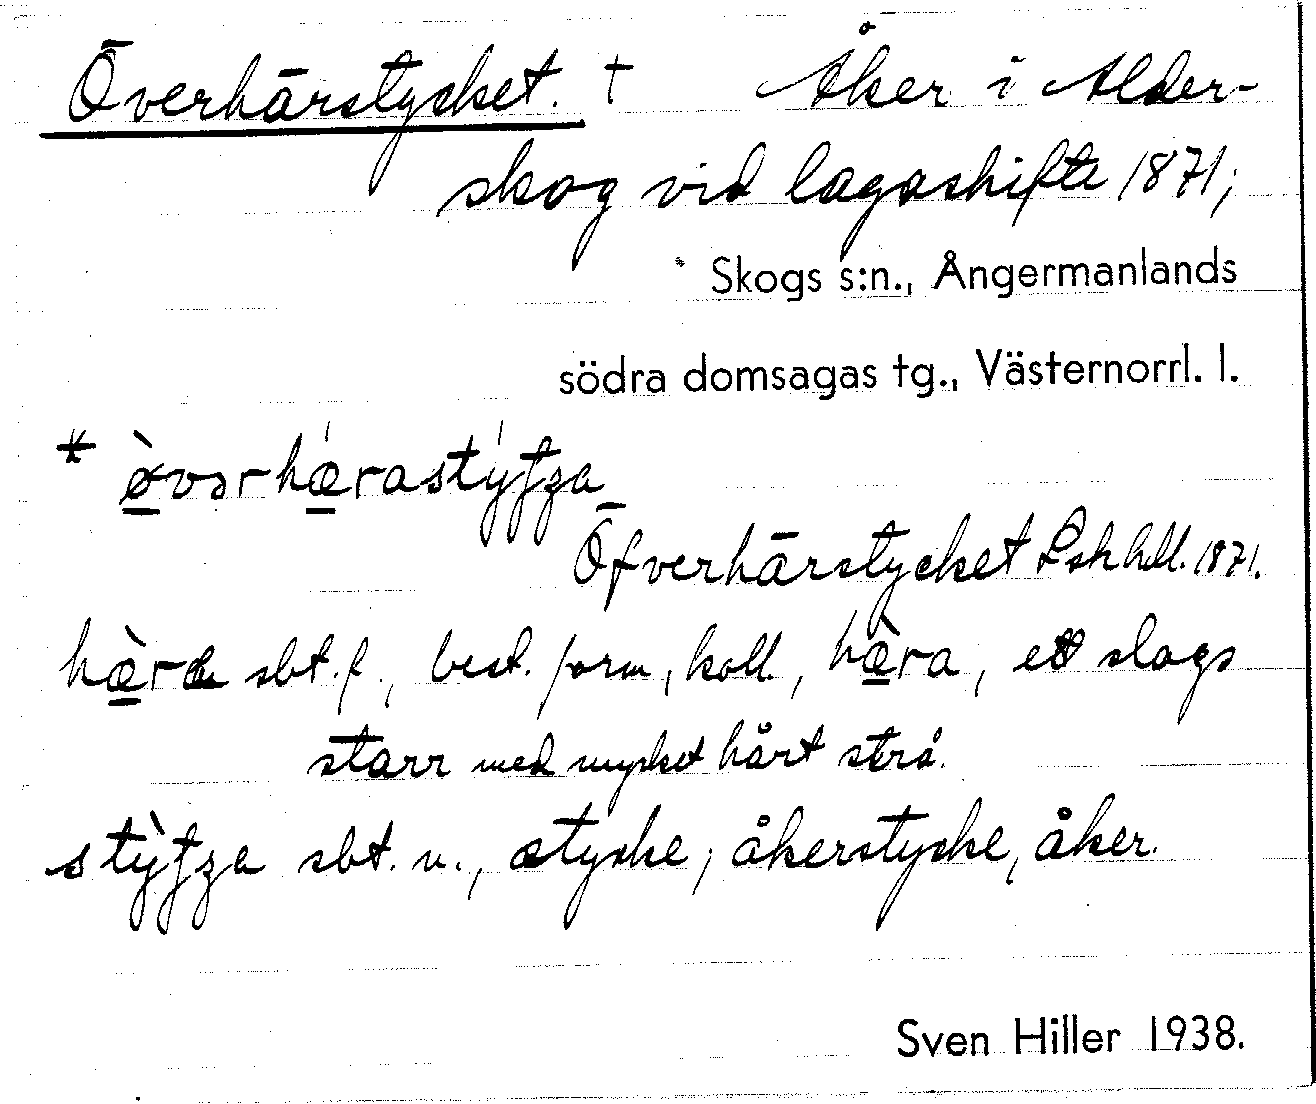 Överhärstycket. † Åker i Alder-
skog vid lagaskifte 1871;
Skogs s:n., Ångermanlands
södra domsagas tg., Västernorrl. l.
* òvərhæ̀rastýʃʒa
Öfverhärstycket Lskhdl. 1871.
hæ̀r sbt. f., best. form, koll., hæ̀ra, ett slags
starr med mycket hårt strå.
stỳʃʒa sbt. n., stycke; åkerstycke, åker.
Sven Hiller 1938.